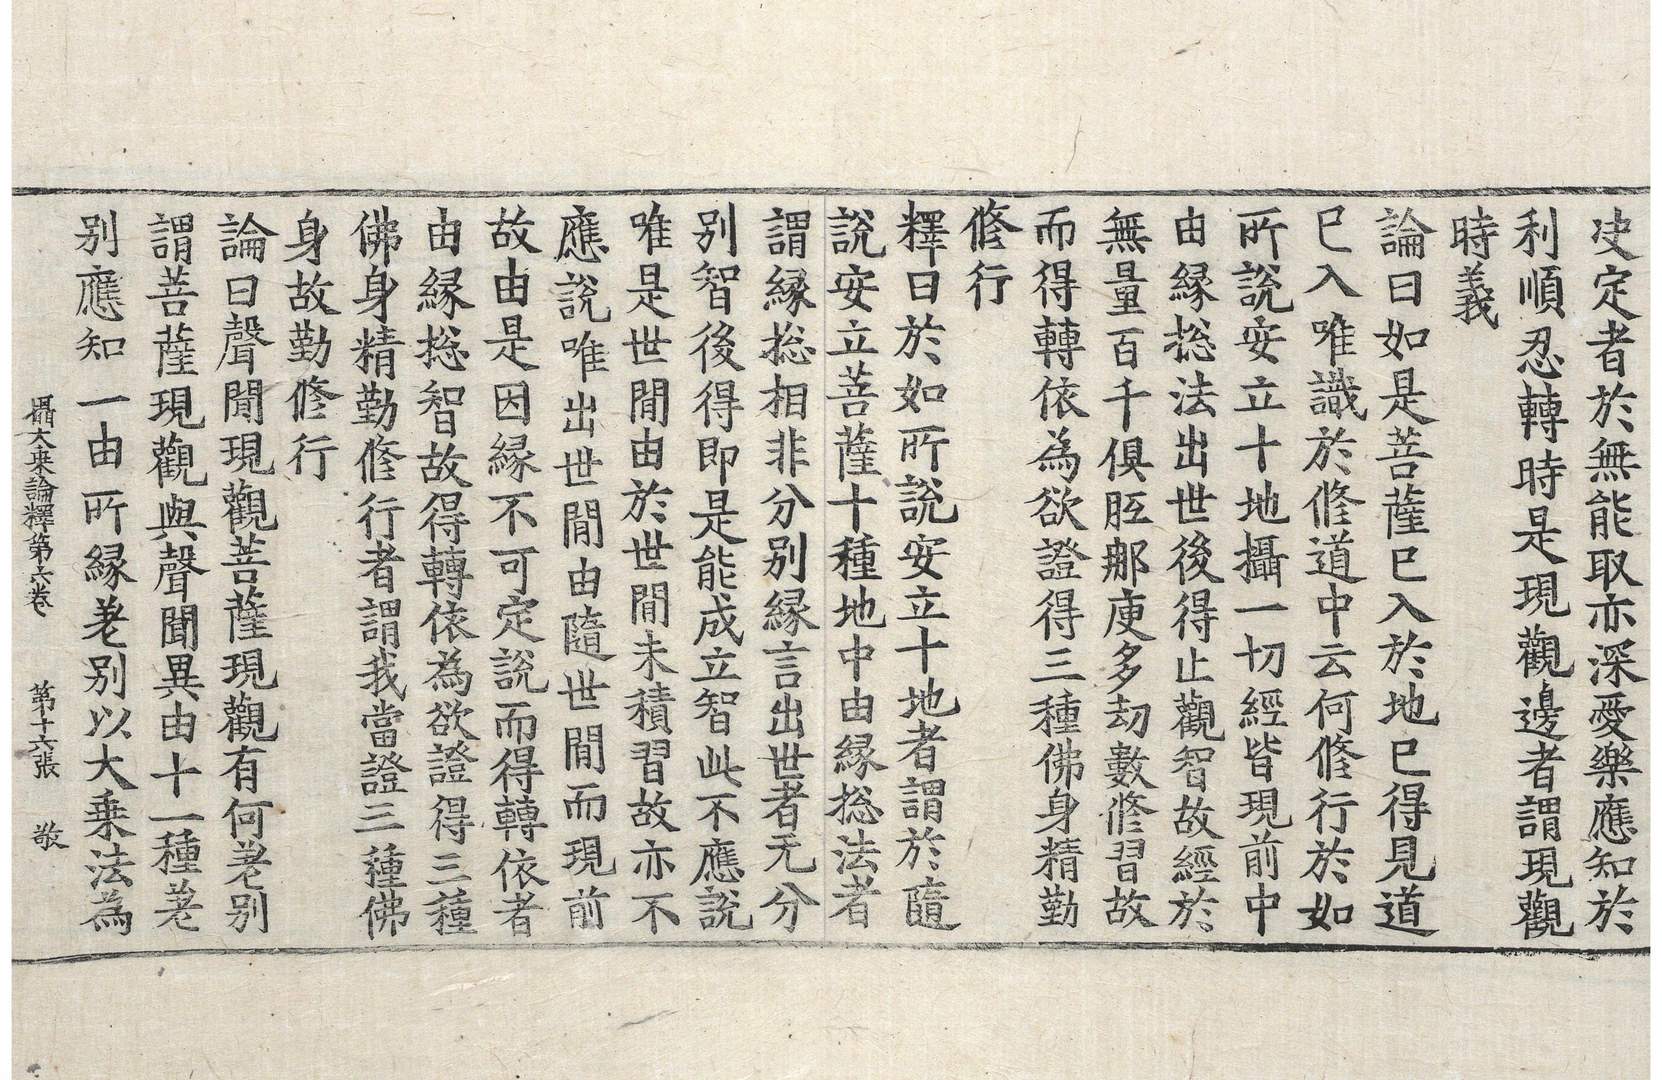 决定者於無能取亦深愛樂應知於
利順忍轉時是現觀邊者謂現觀
時義
論曰如是菩薩已入於地已得見道
已入唯識於修道中云何修行於如
所說安立十地攝一切經皆現前中
由緣揔法出世後得止觀智故經於
無量百千俱胝那庾多劫數修習故
而得轉依為欲證得三種佛身精勤
修行
釋曰於如所說安立十地者謂於隨
說安立菩薩十種地中由緣揔法者
謂緣揔相非分別緣言出世者无分
別智後得即是能成立智此不應說
唯是世間由於世間未積習故亦不
應說唯出世間由隨世間而現前
故由是因緣不可定說而得轉依者
由緣揔智故得轉依為欲證得三種
佛身精勤修行者謂我當證三種佛
身故勤修行
論曰聲聞現觀菩薩現觀有何差別
謂菩薩現觀與聲聞異由十一種差
別應知一由所緣差別以大乗法為
攝大乗論釋第六卷 第十六張 敬